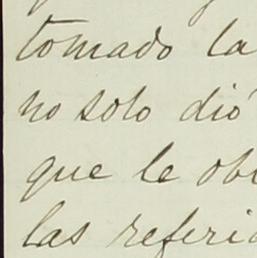 tomado la
no solo dió
que le ob
las referi